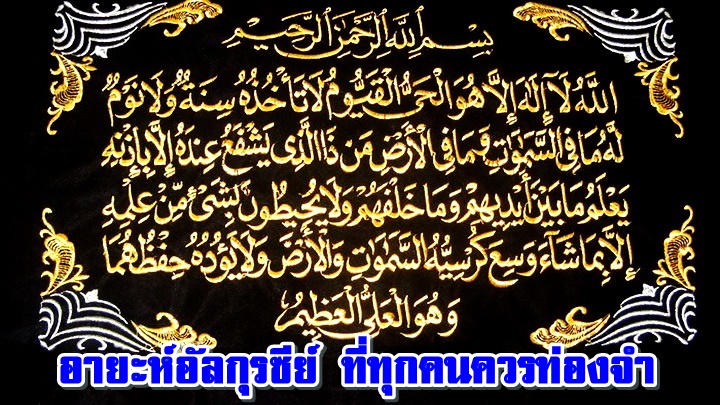 بِسْمِ اللهِ الرَّحْمٰنِ الرَّحِيْمِ
اللهُ لَا إِلٰهَ إِلَّا هُوَ الْحَيُّ الْقَيُّومُ لَا تَأْخُذُهُ سِنَةٌ وَلَا نَوْمٌ
لَهُ مَا فِي السَّمٰوٰتِ وَمَا فِي الْأَرْضِ مَنْ ذَا الَّذِي يَشْفَعُ عِنْدَهُ إِلَّا بِإِذْنِهِ
يَعْلَمُ مَا بَيْنَ أَيْدِيهِمْ وَمَا خَلْفَهُمْ وَلَا يُحِيطُونَ بِشَيْءٍ مِنْ عِلْمِهِ
إِلَّا بِمَا شَاءَ وَسِعَ كُرْسِيُّهُ السَّمٰوٰتِ وَالْأَرْضَ وَلَا يَؤُدُهُ حِفْظُهُمَا
وَهُوَ الْعَلِيُّ الْعَظِيمُ
อายะห์อัลกุรซีย์ ที่ทุกคนควรท่องจำ